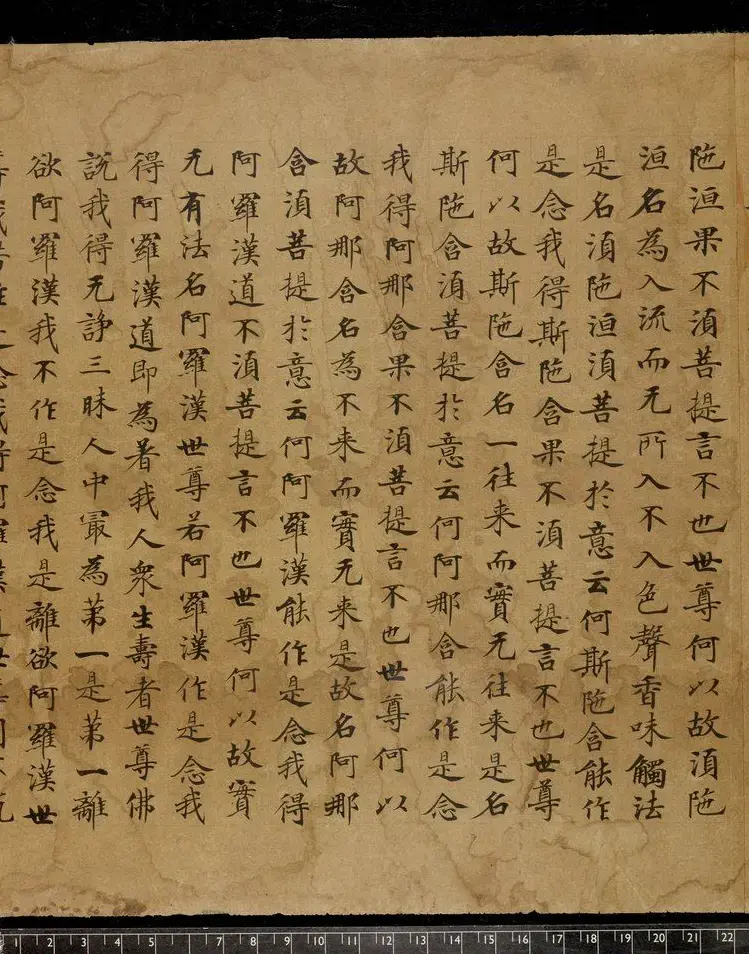 陁洹果不湏菩提言不也世尊何以故湏陁
洹名為入流而无所入不入色聲香味觸法
是名湏陁洹湏菩提於意云何斯陁含能作
是念我得斯陁含果不湏菩提言不也世尊
何以故斯陁含名一往来而實无往来是名
斯陁含湏菩提於意云何阿那含能作是念
我得阿那含果不湏菩提言不也世尊何以
故阿那含名為不来而實无来是故名阿那
含湏菩提於意云何阿羅漢能作是念我得
阿羅漢道不湏菩提言不也世尊何以故實
无有法名阿羅漢世尊若阿羅漢作是念我
得阿羅漢道即為著我人衆生壽者世尊佛
說我得无諍三昧人中冣為苐一是苐一離
欲阿羅漢我不作是念我是離欲阿羅漢世
1 2 3 4 5 6 7 8 9 10 11 12 13 14 15 16 17 18 19 20 21 22